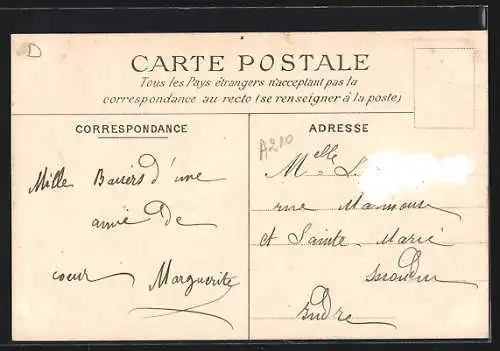 D
CARTE POSTALE
Tous les Pays étrangers n'acceptant pas la
correspondance au recto (se renseigner à la poste)
CORRESPONDANCE
Mille Baisers d'une
amie De
coeur Marguerite
ADRESSE
A210
Melle L
rue
et Sainte-Marie
Issoudun
Indre